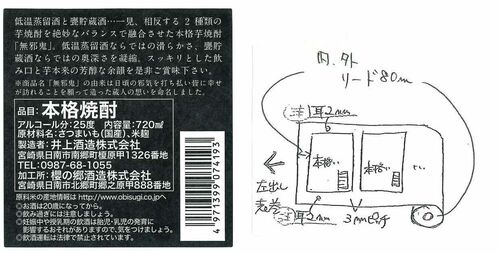 低温蒸留酒と甕貯蔵酒…一見、相反する2種類の
芋焼酎を絶妙なバランスで融合させた本格芋焼酎
「無邪鬼」。低温蒸留酒ならではの滑らかさ、甕貯
蔵酒ならではの奥深さを凝縮。スッキリとした飲
み口と芋本来の芳醇な余韻を是非ご賞味下さい。
※商品名「無邪鬼」の由来は日頃の邪気を打ち払い皆に幸せ
が訪れることを願って造った蔵人の想いを命名しました。
品目:本格焼酎
アルコール分:25度 内容量:720㎖
原材料名:さつまいも(国産)、米麹
製造者:井上酒造株式会社
宮崎県日南市南郷町榎原甲1326番地
TEL.0987-68-1055
加工所:櫻の郷酒造株式会社
宮崎県日南市北郷町郷之原甲888番地
原料米の産地情報は http://www.obisugi.co.jpへ
◎お酒は20歳になってから。
◎飲み過ぎには注意しましょう。
◎妊娠中や授乳期の飲酒は胎児・乳児の発育に
影響するおそれがありますので、気をつけましょう。
◎飲酒運転は法律で禁止されています。
4971399074193
内、外
リード80m
注 耳2mm
本格い
本格い
左出し
表巻
注 耳2mm
3mmピッチ